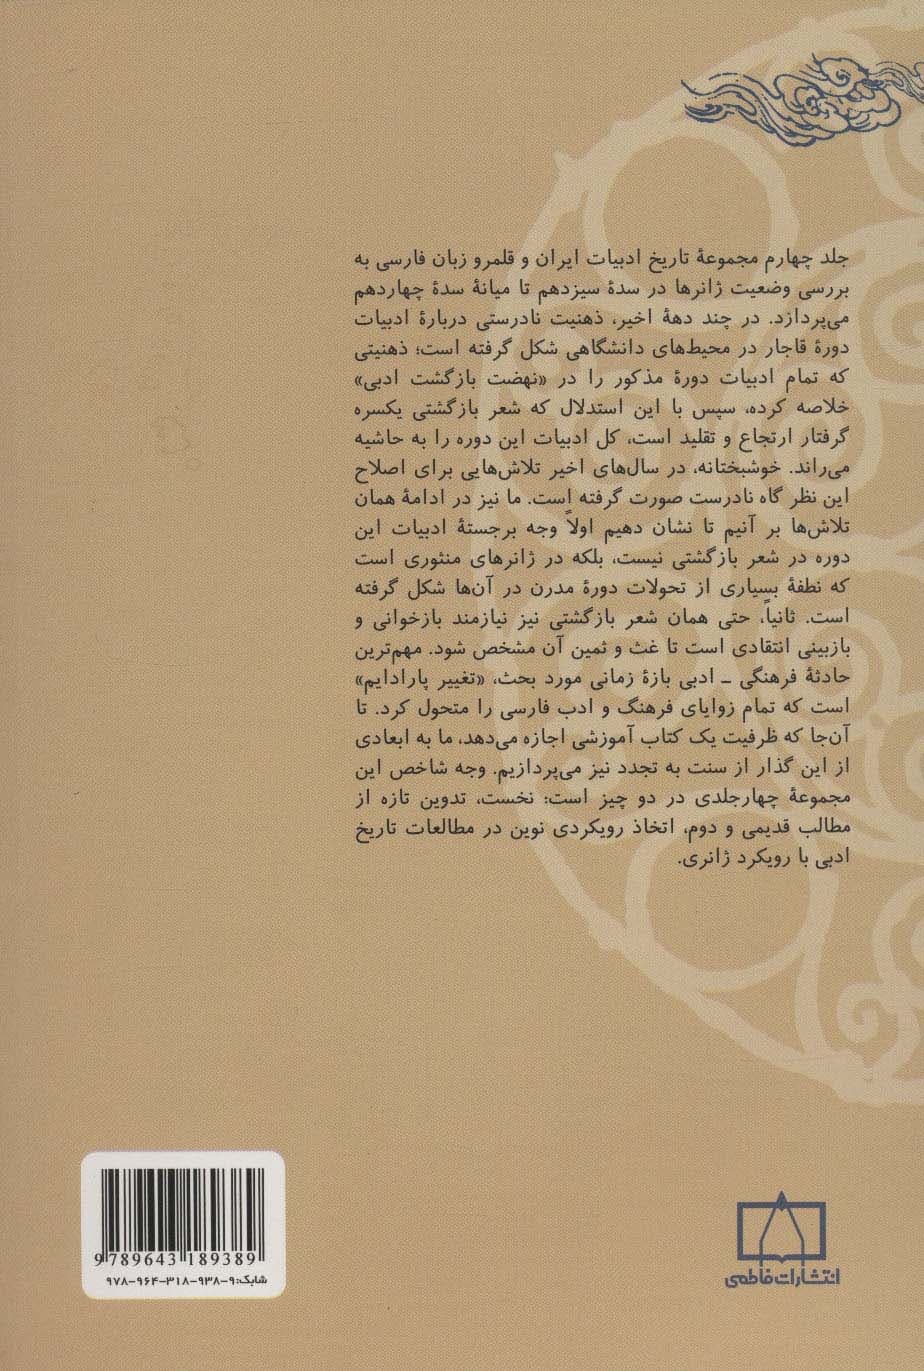 جلد چهارم مجموعهٔ تاریخ ادبیات ایران و قلمرو زبان فارسی به
بررسی وضعیت ژانرها در سدهٔ سیزدهم تا میانهٔ سدهٔ چهاردهم
می‌پردازد. در چند دههٔ اخیر، ذهنیت نادرستی دربارهٔ ادبیات
دورهٔ قاجار در محیط‌های دانشگاهی شکل گرفته است؛ ذهنیتی
که تمام ادبیات دورهٔ مذکور را در «نهضت بازگشت ادبی»
خلاصه کرده، سپس با این استدلال که شعر بازگشتی یکسره
گرفتار ارتجاع و تقلید است، کل ادبیات این دوره را به حاشیه
می‌راند. خوشبختانه، در سال‌های اخیر تلاش‌هایی برای اصلاح
این نظر گاه نادرست صورت گرفته است. ما نیز در ادامهٔ همان
تلاش‌ها بر آنیم تا نشان دهیم اولاً وجه برجستهٔ ادبیات این
دوره در شعر بازگشتی نیست، بلکه در ژانرهای منثوری است
که نطفهٔ بسیاری از تحولات دورهٔ مدرن در آن‌ها شکل گرفته
است. ثانیاً، حتی همان شعر بازگشتی نیز نیازمند بازخوانی و
بازبینی انتقادی است تا غث و ثمین آن مشخص شود. مهم‌ترین
حادثهٔ فرهنگی ـ ادبی بازهٔ زمانی مورد بحث، «تغییر پارادایم»
است که تمام زوایای فرهنگ و ادب فارسی را متحول کرد. تا
آن‌جا که ظرفیت یک کتاب آموزشی اجازه می‌دهد، ما به ابعادی
از این گذار از سنت به تجدد نیز می‌پردازیم. وجه شاخص این
مجموعهٔ چهارجلدی در دو چیز است: نخست، تدوین تازه از
مطالب قدیمی و دوم، اتخاذ رویکردی نوین در مطالعات تاریخ
ادبی با رویکرد ژانری.
9 789643 189389
شابک: ۹۷۸-۹۶۴-۳۱۸-۹۳۸-۹
انتشارات فاطمی